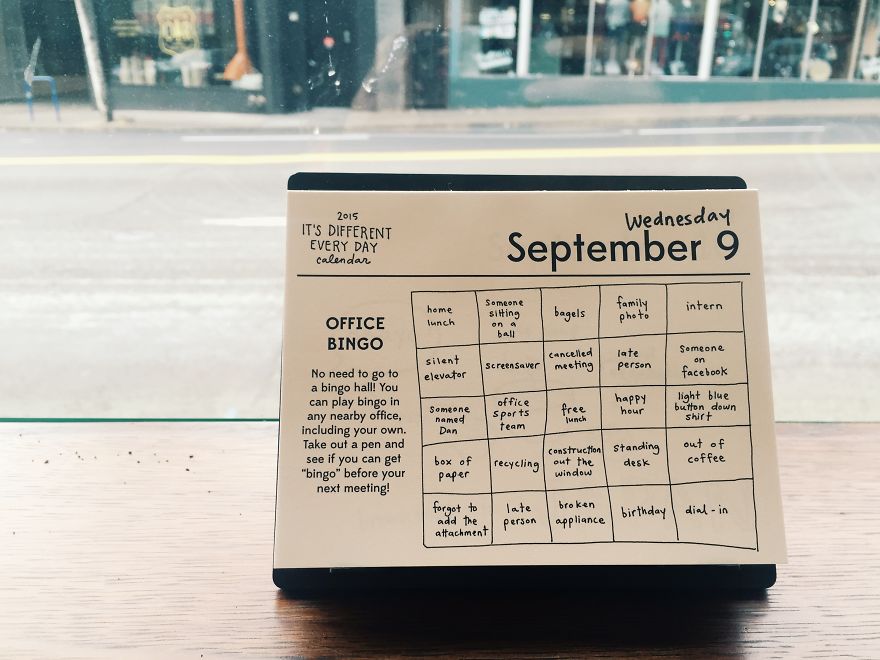 2015
IT'S DIFFERENT
EVERY DAY
calendar
Wednesday
September 9
OFFICE
BINGO
No need to go to
a bingo hall! You
can play bingo in
any nearby office,
including your own.
Take out a pen and
see if you can get
"bingo" before your
next meeting!
home
lunch
Someone
sitting
on a
ball
bagels
family
photo
intern
silent
elevator
screensaver
cancelled
meeting
late
person
Someone
on
facebook
Someone
named
Dan
office
sports
team
free
lunch
happy
hour
light blue
button down
shirt
box of
paper
recycling
construction
out the
window
standing
desk
out of
coffee
forgot to
add the
attachment
late
person
broken
appliance
birthday
dial-in